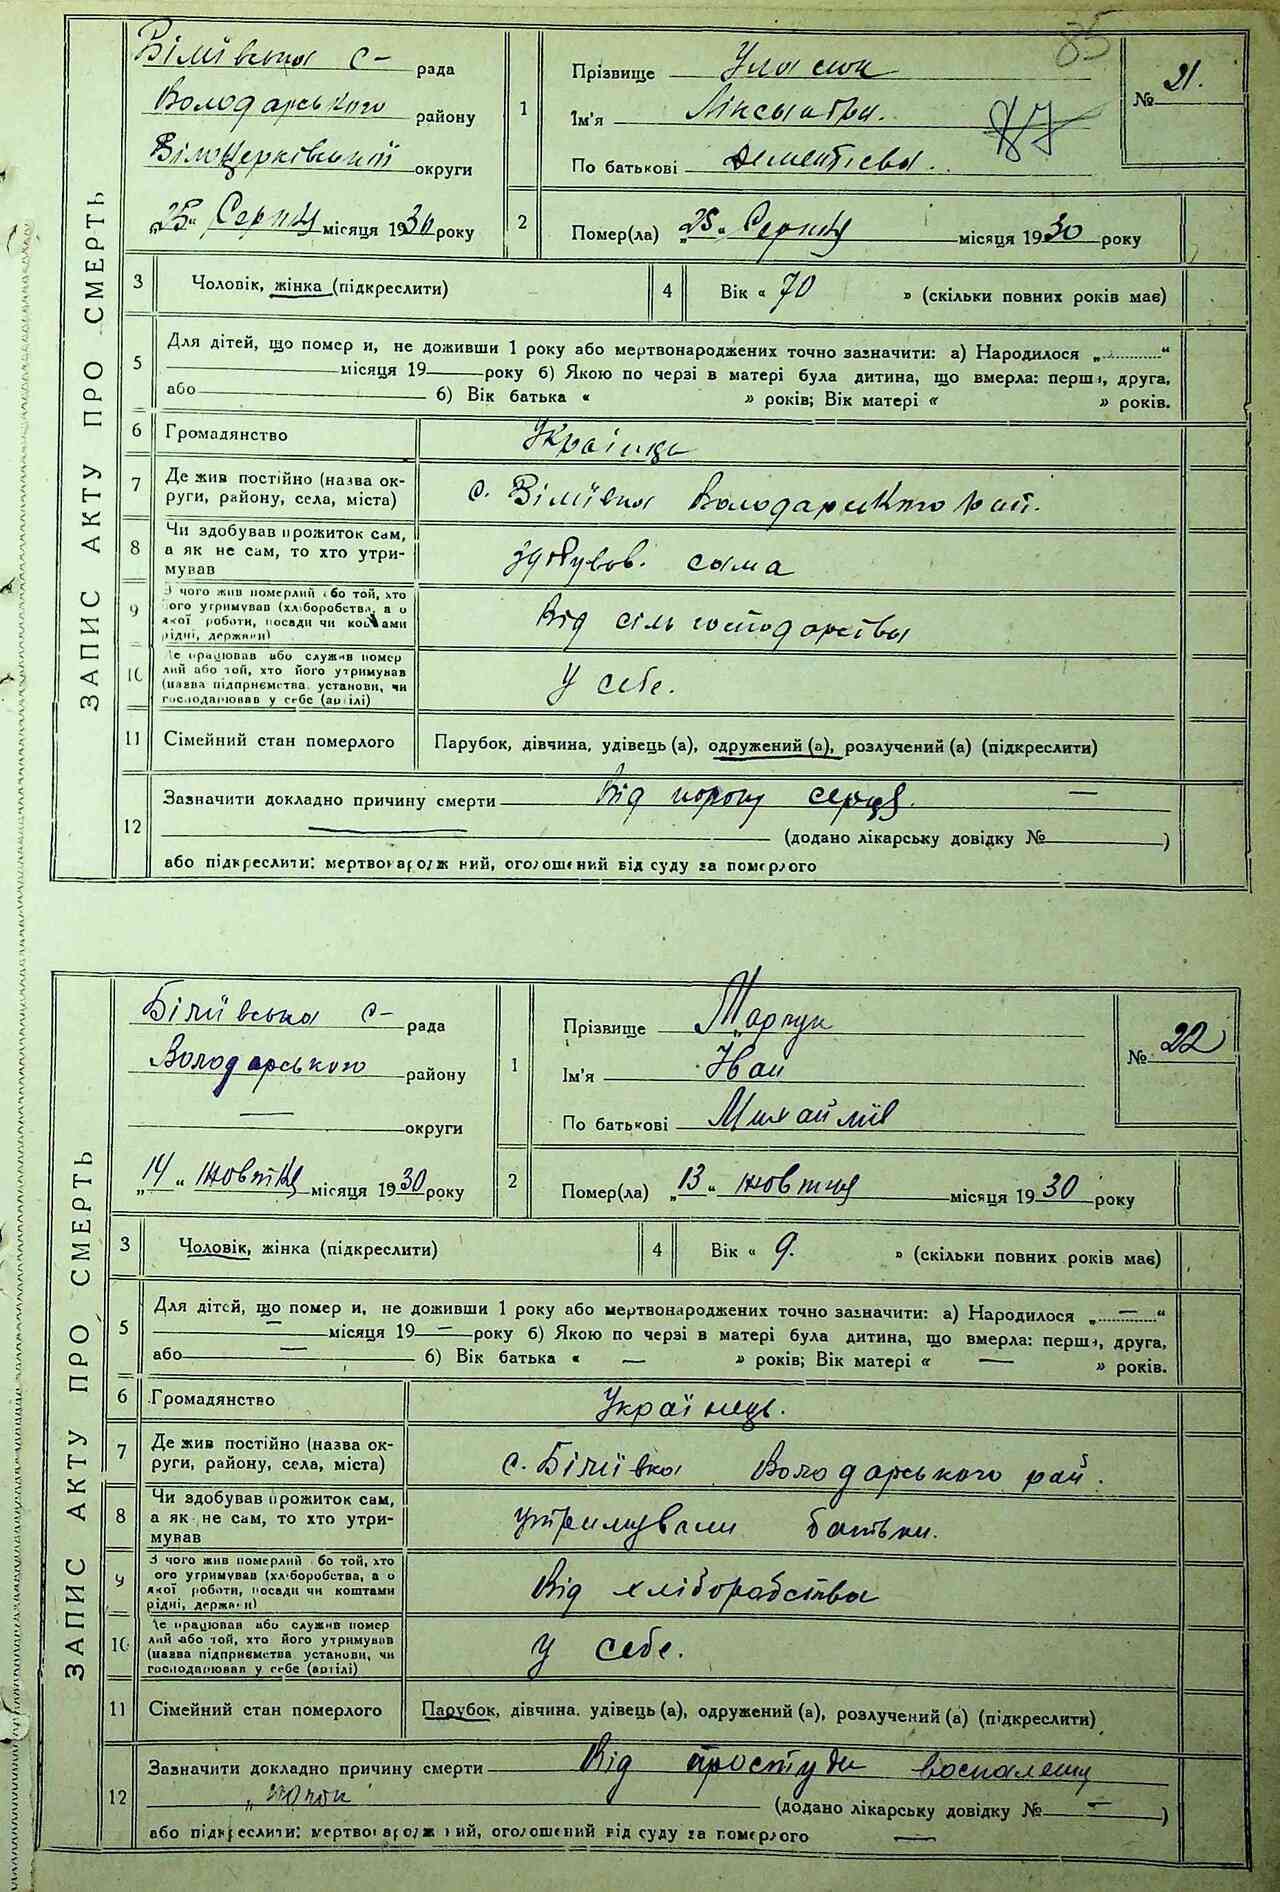 85
ЗАПИС АКТУ ПРО СМЕРТЬ
Білиївська с- рада
Володарського району
Білоцерківський округи
„25“ Серпня місяця 1930 року
1
Прізвище
Ім'я
По батькові Дементієва
№ 21.
2
Помер(ла) „25“ Серпня місяця 1930 року
3
Чоловік, жінка (підкреслити)
4
Вік « 70 » (скільки повних років має)
5
Для дітей, що помер и, не доживши 1 року або мертвонароджених точно зазначити: а) Народилося „ “
місяця 19 року б) Якою по черзі в матері була дитина, що вмерла: перша, друга,
або б) Вік батька « » років; Вік матері « » років.
6
Громадянство
Українка
7
Де жив постійно (назва ок-
руги, району, села, міста)
с. Біліївка Володарського рай.
8
Чи здобував прожиток сам,
а як не сам, то хто утри-
мував
здобував. сама
9
З чого жив померлий або той, хто
його утримував (хліборобства, а о
якої роботи, посади чи коштами
рідні, держави)
Від сільгосподарства
10
Де працював або служив помер
лий або той, хто його утримував
(назва підприємства. установи, чи
господарював у себе (артілі)
У себе.
11
Сімейний стан померлого
Парубок, дівчина, удівець (а), одружений (а), розлучений (а) (підкреслити)
12
Зазначити докладно причину смерти Від пороку серця. —
(додано лікарську довідку № )
або підкреслити: мертвонароджений, оголошений від суду за померлого
ЗАПИС АКТУ ПРО СМЕРТЬ
Біліївська с- рада
Володарського району
— округи
„14“ жовтня місяця 1930 року
1
Прізвище
Ім'я Иван
По батькові Михайлів
№ 22
2
Помер(ла) „13“ жовтня місяця 1930 року
3
Чоловік, жінка (підкреслити)
4
Вік « 9. » (скільки повних років має)
5
Для дітей, що помер и, не доживши 1 року або мертвонароджених точно зазначити: а) Народилося „ — “
— місяця 19 — року б) Якою по черзі в матері була дитина, що вмерла: перша, друга,
або — б) Вік батька « — » років; Вік матері « — » років.
6
Громадянство
Українець.
7
Де жив постійно (назва ок-
руги, району, села, міста)
с. Біліївка Володарського рай.
8
Чи здобував прожиток сам,
а як не сам, то хто утри-
мував
утримували батьки.
9
З чого жив померлий або той, хто
його утримував (хліборобства, а о
якої роботи, посади чи коштами
рідні, держави)
Від хліборобства
10
Де працював або служив помер
лий або той, хто його утримував
(назва підприємства установи, чи
господарював у себе (артілі)
У себе.
11
Сімейний стан померлого
Парубок, дівчина. удівець (а), одружений (а), розлучений (а) (підкреслити)
12
Зазначити докладно причину смерти Від простуди воспаления
(додано лікарську довідку № — )
або підкреслити: мертвонароджений, оголошений від суду за померлого —